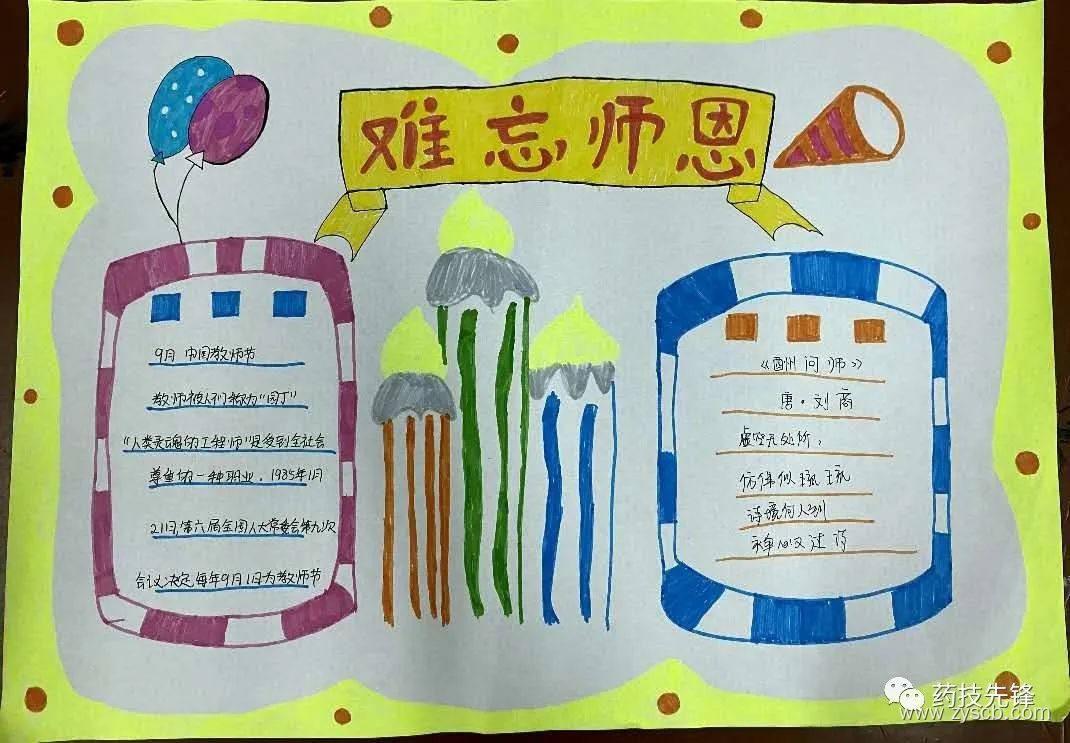 难忘师恩
9月 中国教师节
教师被人们称为“园丁”
“人类灵魂的工程师”是受到全社会
尊重的一种职业。1985年1月
21日,第六届全国人大常委会第九次
会议决定每年9月1日为教师节
《酬问师》
唐·刘商
虚空无处所,
似
诗境何人到
又过诗
药技先锋
www.zyscb.com